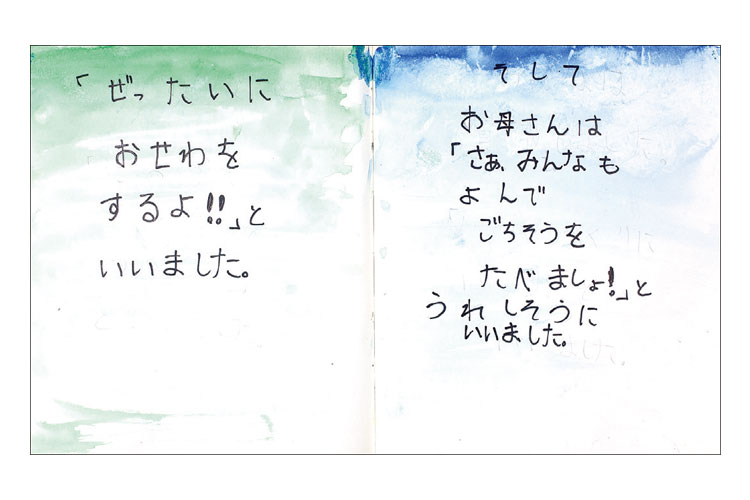 「ぜったいに
おせわを
するよ!!」と
いいました。
そして
お母さんは
「さぁ、みんなも
よんで
ごちそうを
たべましょ!」と
うれしそうに
いいました。